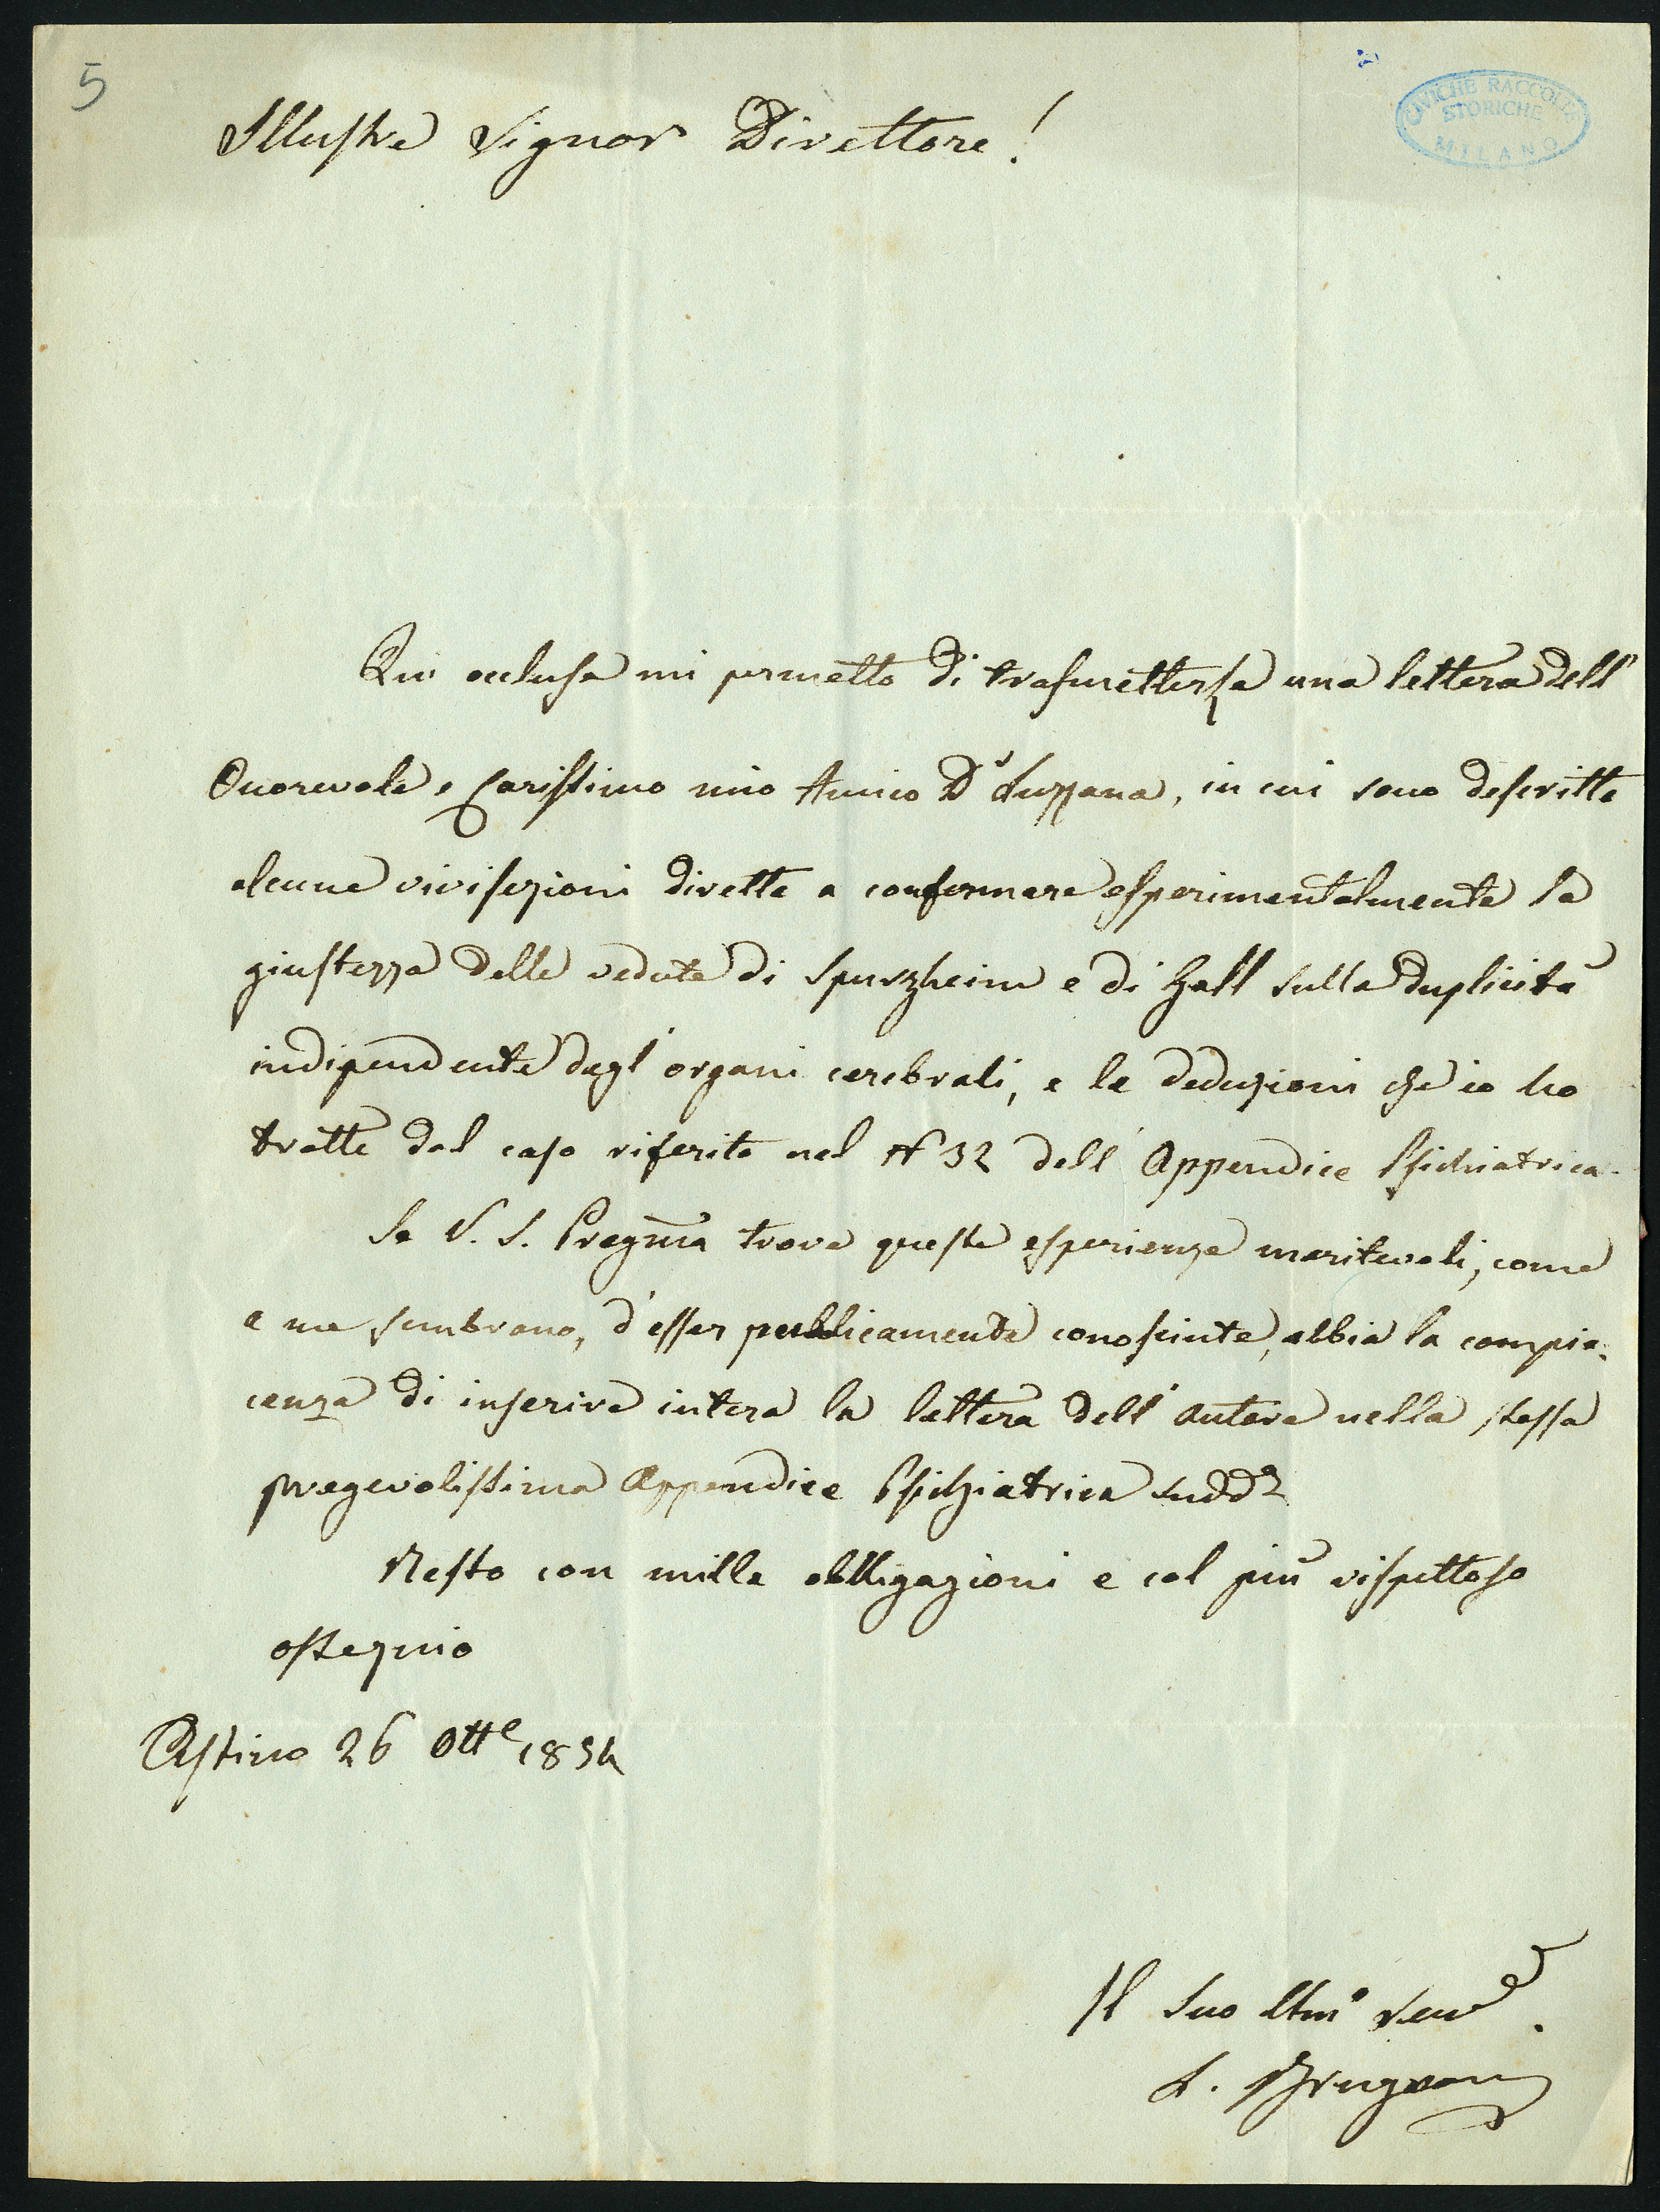 5
CIVICHE RACCOLTE
STORICHE
MILANO
Illustre Signor Direttore!
Qui occlusa mi permetto di trasmetterle una lettera dell'
Onorevole e Carissimo mio Amico Dr Lussana, in cui sono descritte
alcune vivisezioni dirette a confermare esperimentalmente la
giustezza delle vedute di Spurzheim e di Gall sulla duplicità
indipendente degl' organi cerebrali, e le deduzioni che io ho
tratte dal caso riferito nel N 32 dell' Appendice Psichiatrica.
Se V. S. Pregma trova queste esperienze meritevoli, come
a me sembrano, d'esser pubblicamente conosciute, abbia la compia-
cenza di inserire intera la lettera dell' autore nella stessa
pregevolissima Appendice Psichiatrica sudda
Resto con mille obbligazioni e col più rispettoso
ossequio
Astino 26 Otte 1854
Il Suo Umo Serve
L. Brugnoni